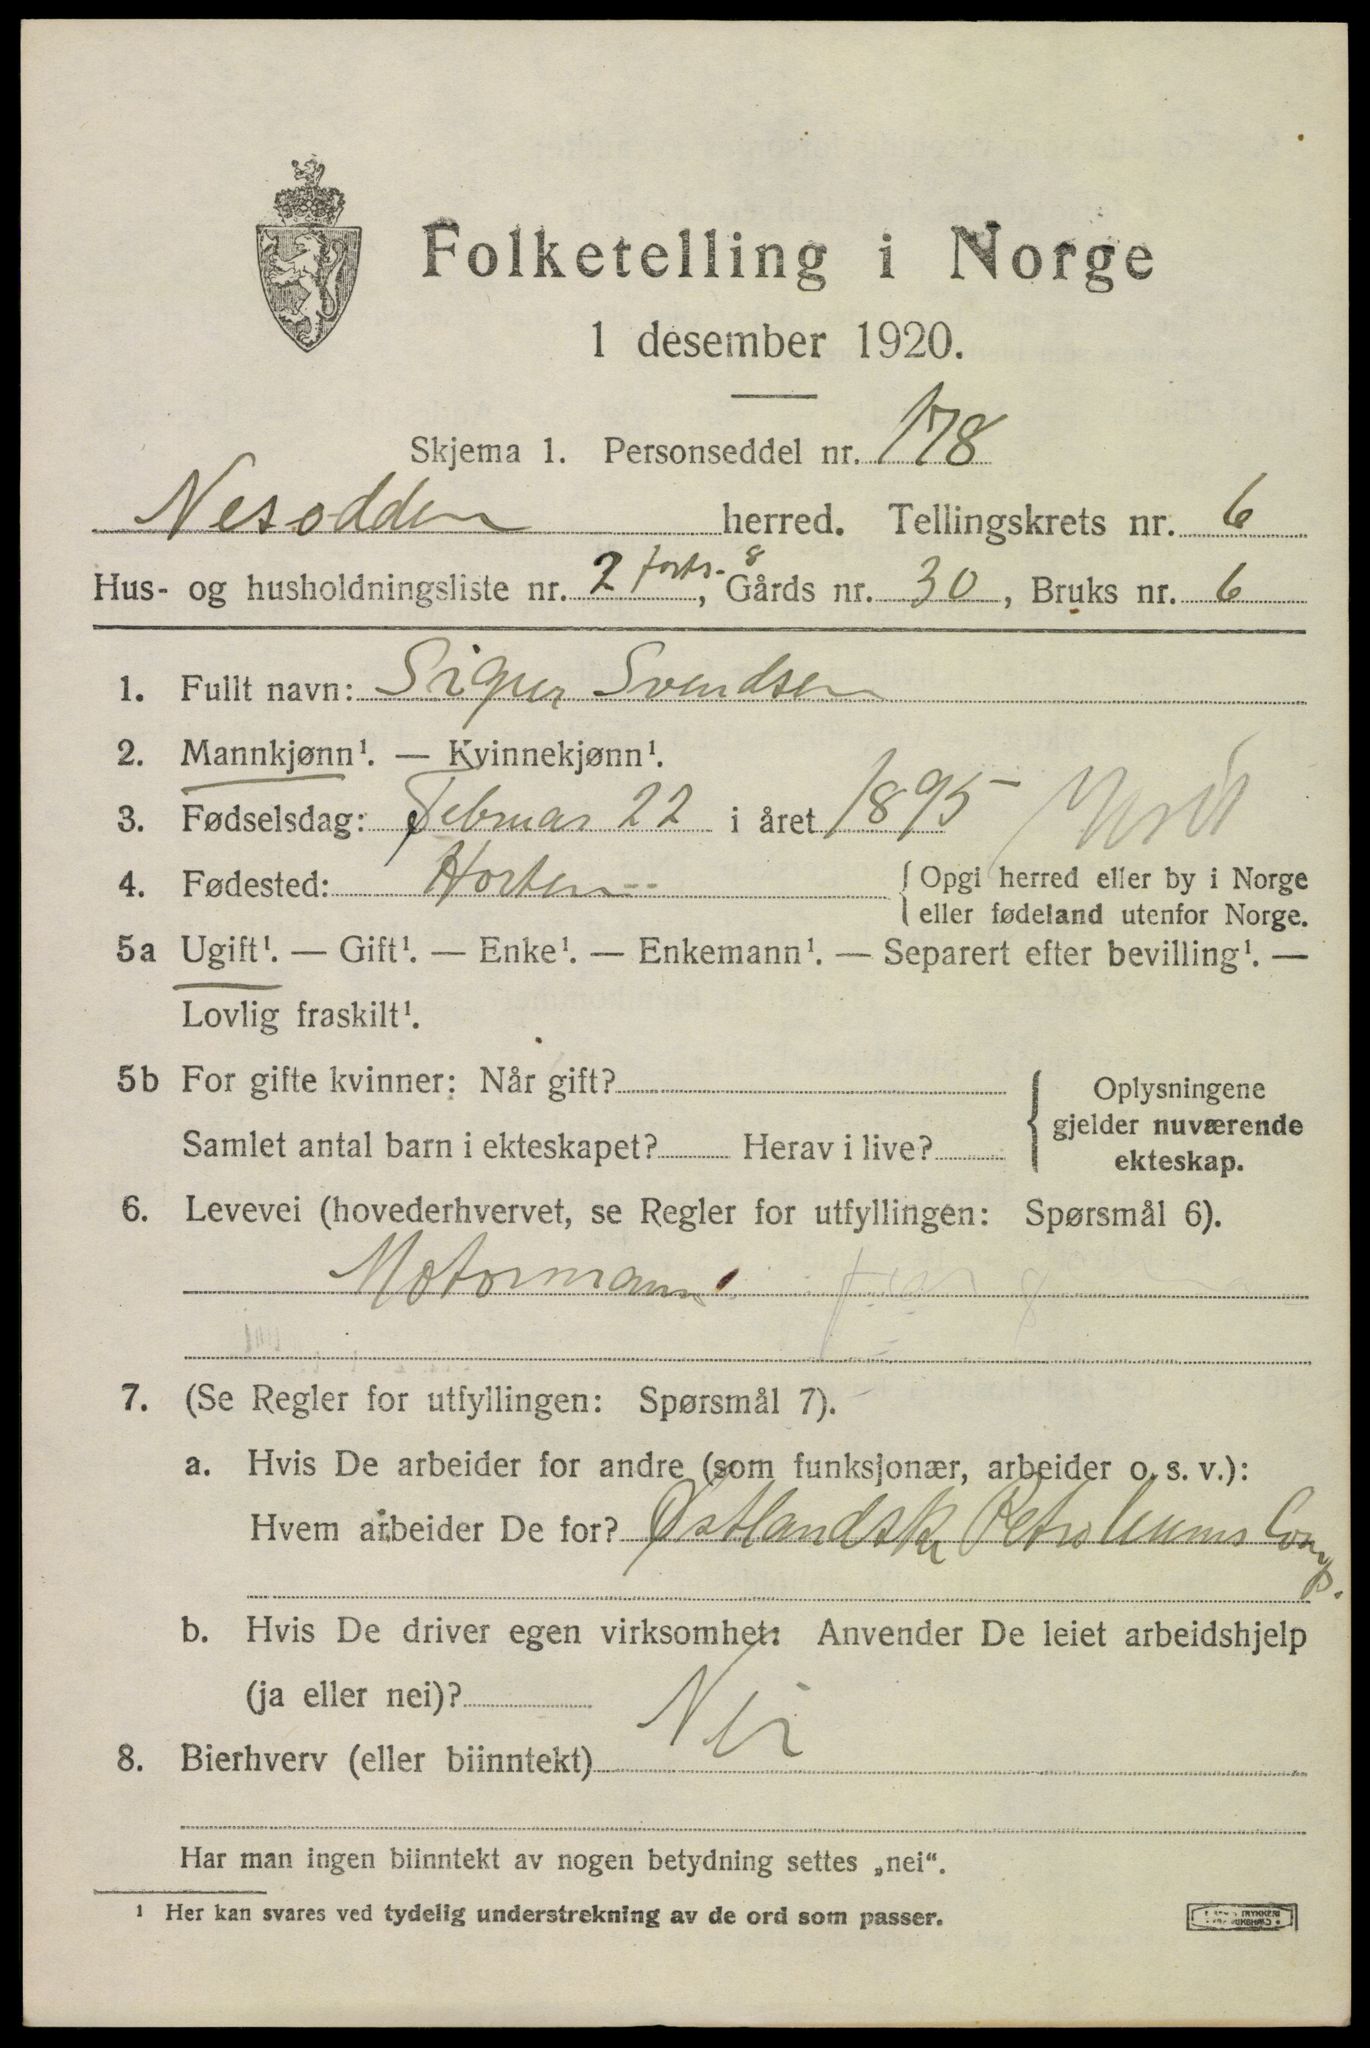 Folketelling i Norge
1 desember 1920.
Skjema 1. Personseddel nr. 178
Nesodden herred. Tellingskrets nr. 6
Hus- og husholdningsliste nr. 2 forts. 8, Gårds nr. 30, Bruks nr. 6
1. Fullt navn: Sigur Svendsen
2. Mannkjønn¹. — Kvinnekjønn¹.
3. Fødselsdag: Februar 22 i året 1895
4. Fødested: Horten {Opgi herred eller by i Norge
eller fødeland utenfor Norge.
5a Ugift¹. — Gift¹. — Enke¹. — Enkemann¹. — Separert efter bevilling¹. —
Lovlig fraskilt¹.
5b For gifte kvinner: Når gift?
Samlet antal barn i ekteskapet? Herav i live?
{Oplysningene
gjelder nuværende
ekteskap.
6. Levevei (hovederhvervet, se Regler for utfyllingen: Spørsmål 6).
Motormann
7. (Se Regler for utfyllingen: Spørsmål 7).
a. Hvis De arbeider for andre (som funksjonær, arbeider o. s. v.):
Hvem arbeider De for? Østlandske Petroleums Comp.
b. Hvis De driver egen virksomhet: Anvender De leiet arbeidshjelp
(ja eller nei)?
8. Bierhverv (eller biinntekt) Nei
Har man ingen biinntekt av nogen betydning settes „nei“.
¹ Her kan svares ved tydelig understrekning av de ord som passer.